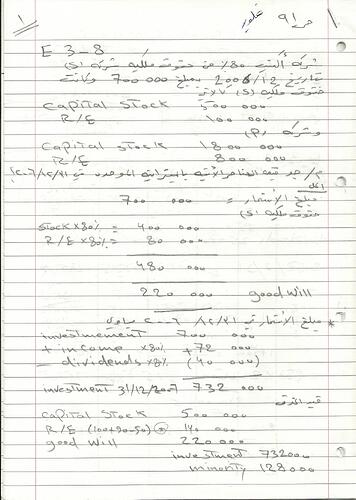 ١
ص ٩١
E 3-8
شركة اكتسبت 80٪ من حقوق ملكية شركة
بتاريخ 2006/1/2 بمبلغ 700 000 وكانت
حقوق ملكية كالاتي
Capital Stock 500 000
R/E 100 000
وشركة
Capital Stock 1800 000
R/E 800 000
م/ جد قيمة العناصر الاتية بالميزانية الموحدة في
الحل
مبلغ الأستثمار = 700 000
حقوق ملكية
Stock x 80% = 400 000
R/E x 80% = 80 000
480 000
220 000 good will
* مبلغ الأستثمار في
investmement 700 000
+ income x 80% + 72 000
- dividends x 80% (40 000)
investment 31/12/2007 732 000
قيد
Capital Stock 500 000
R/E (100+90-50) 140 000
good will 220 000
investment 732000
minority 128000